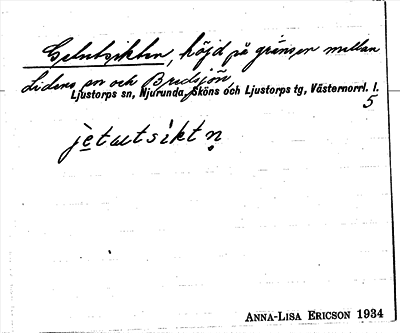 Getutsikten, höjd på gränsen mellan
Lidens sn och Bredsjön
Ljustorps sn, Njurunda, Sköns och Ljustorps tg, Västernorrl. l.
5
jetutsiktn
ANNA-LISA ERICSON 1934